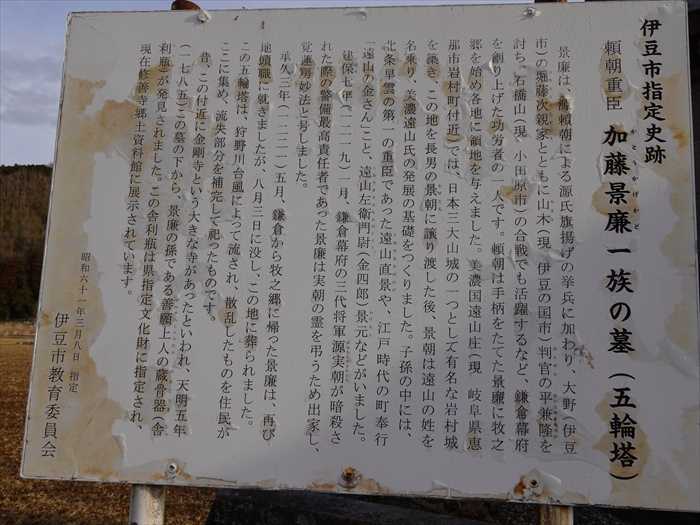 伊豆市指定史跡
頼朝重臣 加藤景廉一族の墓(五輪塔)
かとうかげかど
景廉は、源頼朝による源氏旗揚げの挙兵に加わり、大野(伊豆
市)の堀藤次親家とともに山木(現 伊豆の国市)判官の平兼隆を
討ち、石橋山(現、小田原市)の合戦でも活躍するなど、鎌倉幕府
を創り上げた功労者の一人です。頼朝は手柄をたてた景廉に牧之
郷を始め各地に領地を与えました。美濃国遠山庄(現 岐阜県恵
那市岩村町付近)では、日本三大山城の一つとして有名な岩村城
を築き、この地を長男の景朝に譲り渡した後、景朝は遠山の姓を
名乗り、美濃遠山氏の発展の基礎をつくりました。子孫の中には、
北条早雲の第一の重臣であった遠山直景や、江戸時代の町奉行
「遠山の金さん」こと、遠山左衛門尉(金四郎)景元などがいました。
建保七年(一二一九)一月、鎌倉幕府の三代将軍源実朝が暗殺さ
れた際の警備最高責任者であった景廉は実朝の霊を弔うため出家し、
覚蓮房妙法と号しました。
承久三年(一二二一)五月、鎌倉から牧之郷に帰った景廉は、再び
地頭職に就きましたが、八月三日に没し、この地に葬られました。
この五輪塔は、狩野川台風によって流され、散乱したものを住民が
ここに集め、流失部分を補完して祀ったものです。
昔、この付近に金剛寺という大きな寺があったといわれ、天明五年
(一七八五)この墓の下から、景廉の孫である善願上人の蔵骨器(舎
利瓶)が発見されました。この舎利瓶は県指定文化財に指定され、
現在修善寺郷土資料館に展示されています。
昭和六十一年三月八日 指定
伊豆市教育委員会